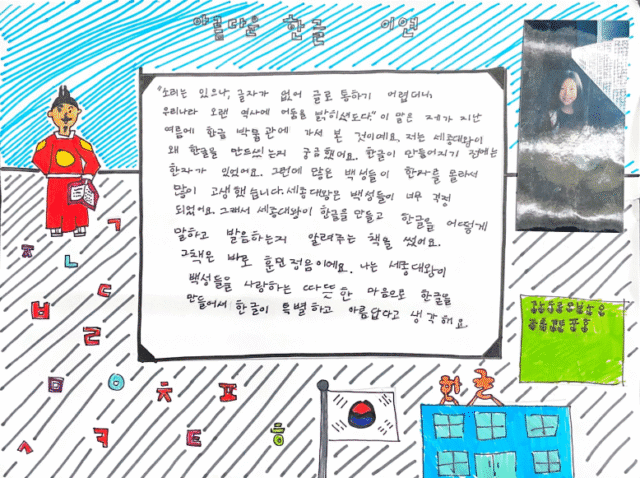 아름다운 한글 이연
"소리는 있으나, 글자가 없어 글로 통하기 어렵더니,
우리나라 오랜 역사에 어둠을 밝히셨도다." 이 말은 제가 지난
여름에 한글 박물관에 가서 본 것이에요. 저는 세종대왕이
왜 한글을 만드셨는지 궁금했어요. 한글이 만들어지기 전에는
한자가 있었어요. 그런데 많은 백성들이 한자를 몰라서
많이 고생했습니다. 세종대왕은 백성들이 너무 걱정
되었어요. 그래서 세종대왕이 한글을 만들고 한글을 어떻게
말하고 발음하는지 알려주는 책을 썼어요.
그 책은 바로 훈민정음이에요. 나는 세종대왕이
백성들을 사랑하는 따뜻한 마음으로 한글을
만들어서 한글이 특별하고 아름답다고 생각해요
ㄱ
ㅈ ㄴ ㄷ
ㅂ ㄹ
ㅁ ㅇ ㅊ ㅍ
ㅅ ㅋ ㅌ ㅎ
한글